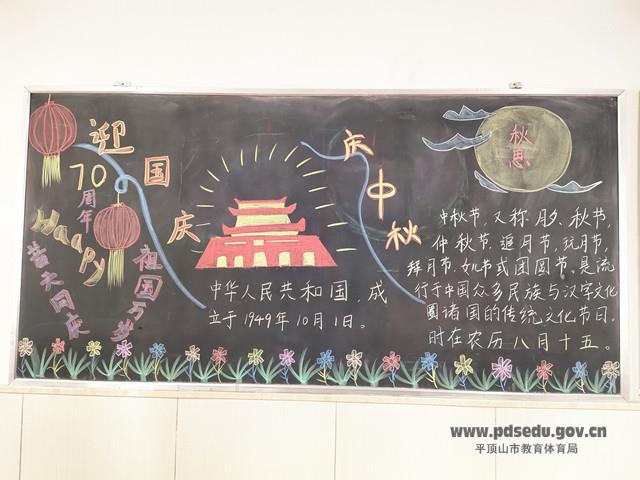 迎国庆
70周年
Haapy
普天同庆
祖国万岁
中华人民共和国，成
立于1949年10月1日。
庆中秋
秋思
中秋节，又称月夕、秋节，
仲秋节、追月节、玩月节，
拜月节、女儿节或团圆节，是流
行于中国众多民族与汉字文化
圈诸国的传统文化节日，
时在农历八月十五。
www.pdsedu.gov.cn
平顶山市教育体育局